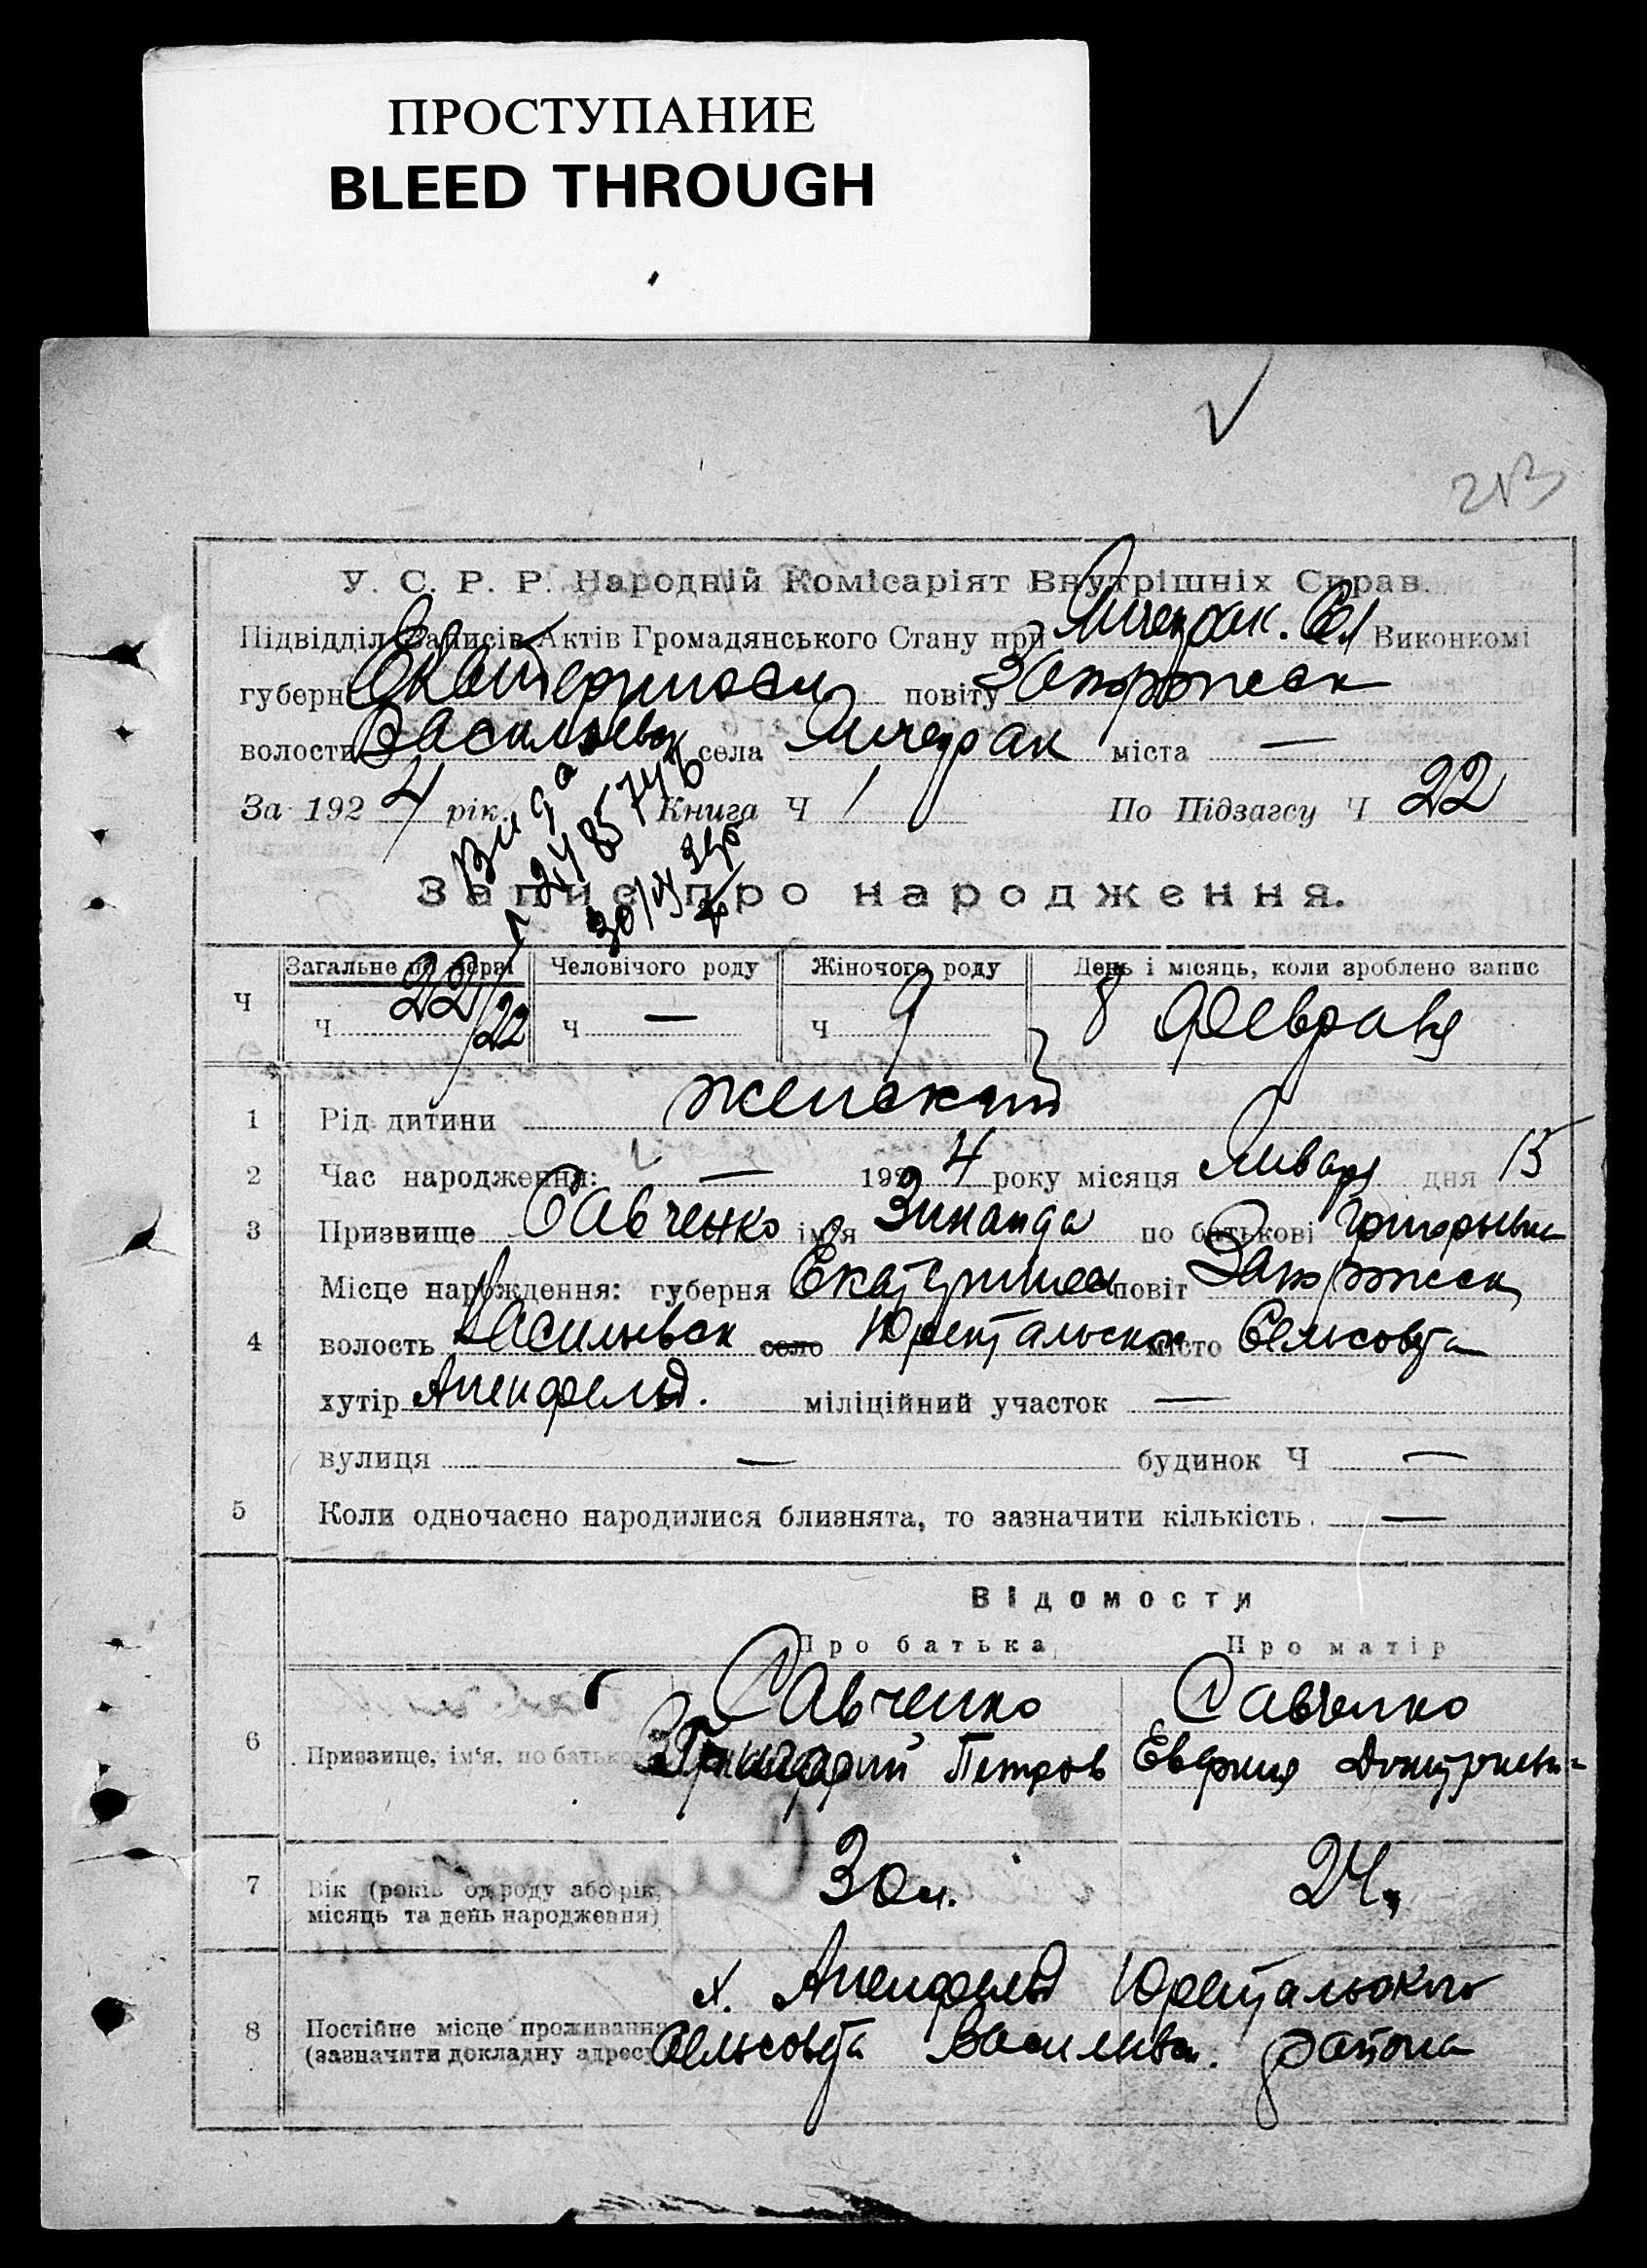 ПРОСТУПАНИЕ
BLEED THROUGH
213
У. С. Р. Р. Народній Комісаріят Внутрішніх Справ.
Підвідділ Записів Актів Громадянського Стану при Мичурак. Сел Виконкомі
губерні Екатериносл повіту Запорожск
волости Васильевск села Мичурак міста —
За 1924 рік. Книга Ч 1 По Підзагсу Ч 22
Запис про народження.
Загальне по черзі Человічого роду Жіночого роду День і місяць, коли зроблено запис
Ч Ч 22/22 Ч — Ч 9 8 Февраля
1 Рід дитини женский
2 Час народження: — 1924 року місяця Января дня 15
3 Призвище Савченко ім'я Зинаида по батькові Григорьевна
Місце народження: губерня Екатериносл повіт Запорожск
4 волость Васильевск село місто Сельсовета
хутір міліційний участок —
вулиця — будинок Ч —
5 Коли одночасно народилися близнята, то зазначити кількість. —
Відомости
Про батька Про матір
Савченко Савченко
6 Призвище, ім'я, по батькові Григорий Петров Дмитриевн
7 Вік (років од роду або рік, місяць та день народження) 30 л. 24
х.
8 Постійне місце проживання (зазначити докладну адресу) Сельсовета Васильевск. района